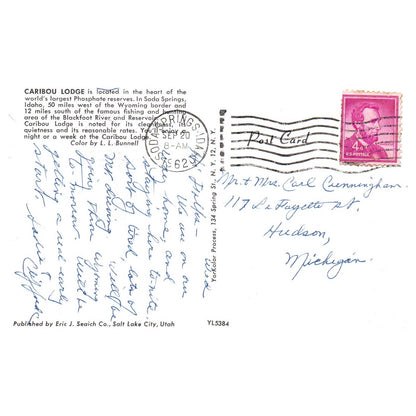 CARIBOU LODGE is located in the heart of the
world's largest Phosphate reserves. In Soda Springs,
Idaho, 50 miles west of the Wyoming border and
12 miles south of the famous fishing and
area of the Blackfoot River and Reservoir
Caribou Lodge is noted for its cleanliness,
quietness and its reasonable rates. You'll enjoy a
night or a week at the Caribou Lodge.
Color by L. L. Bunnell
SODA SPRINGS, IDAHO
SEP 20
8-AM
1962
Wed
We are on our
way home and
staying here tonite.
Sort of tired, lots of
driving. Will be
going thru Wyoming
tomorrow. Will be
getting a real early
start.
Published by Eric J. Seaich Co., Salt Lake City, Utah
YL5384
YorKolor Process, 134 Spring St., N. Y. 12, N. Y.
Post Card
4¢
U.S. POSTAGE
Mr & Mrs. Carl Cunningham
117 LaFayette St.
Hudson,
Michigan.